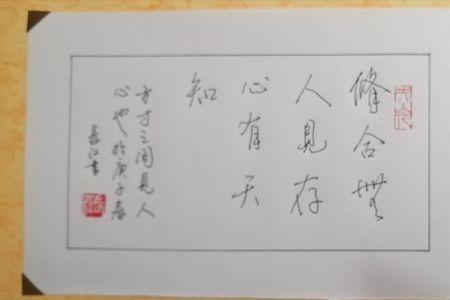 修合無
人見存
心有天
知
方寸之間見人
心也於庚子春
江書